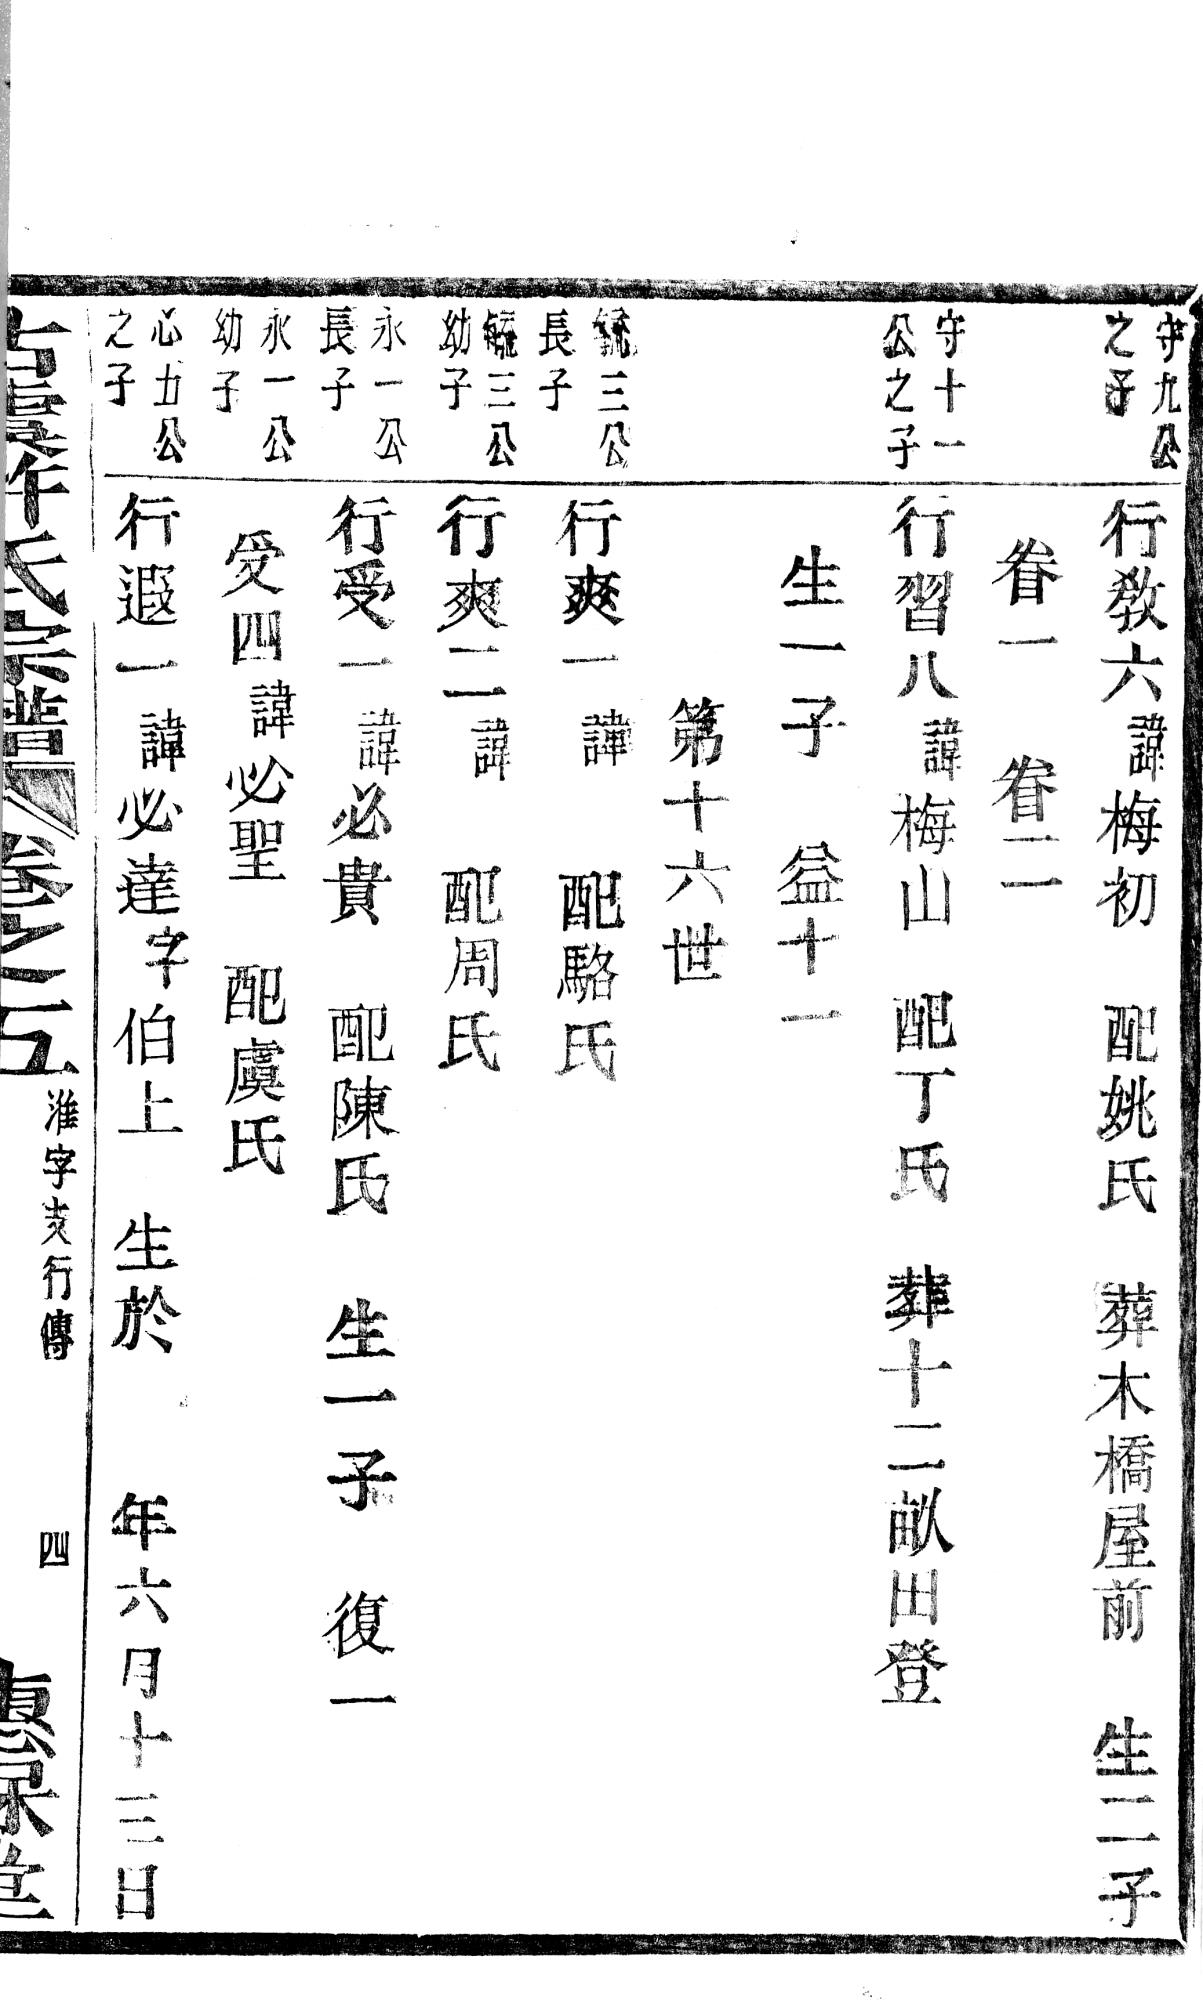 守九公
之子
行教六諱梅初　配姚氏　葬木橋屋前　生二子
眷一　眷二
守十一
公之子
行習八諱梅山　配丁氏　葬十二畝田登
生一子　益十一
第十六世
毓三公
長子
行爽一諱　配駱氏
毓三公
幼子
行爽二諱　配周氏
永一公
長子
行受一諱必貴　配陳氏　生一子　復一
永一公
幼子
受四諱必聖　配虞氏
心五公
之子
行遐一諱必達字伯上　生於　年六月十三日
古虞許氏宗譜　卷之五　淮字支行傳　四　惠保堂